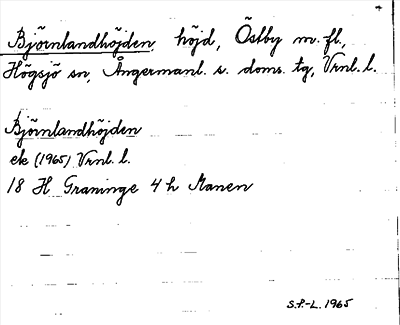 Björnlandhöjden, höjd, Östby m. fl.,
Högsjö sn, Ångermanl. s. doms. tg, Vrnl. l.
Björnlandhöjden
ek (1965) Vrnl. l.
18 H Graninge 4 h Manen
S.F.-L. 1965